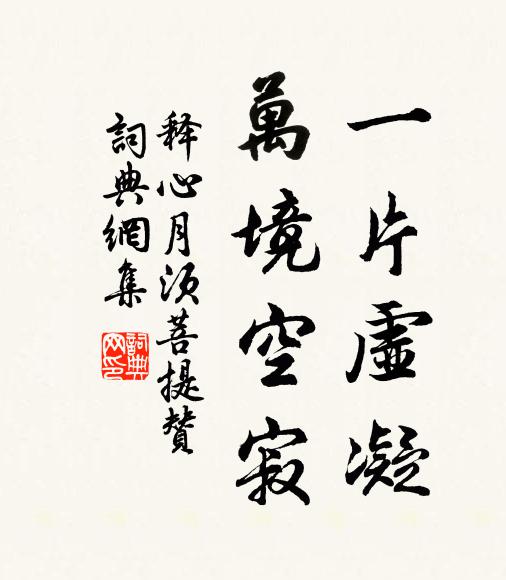 一片虛凝
萬境空寂
释心月须菩提賛
詞典網集
詞典网印